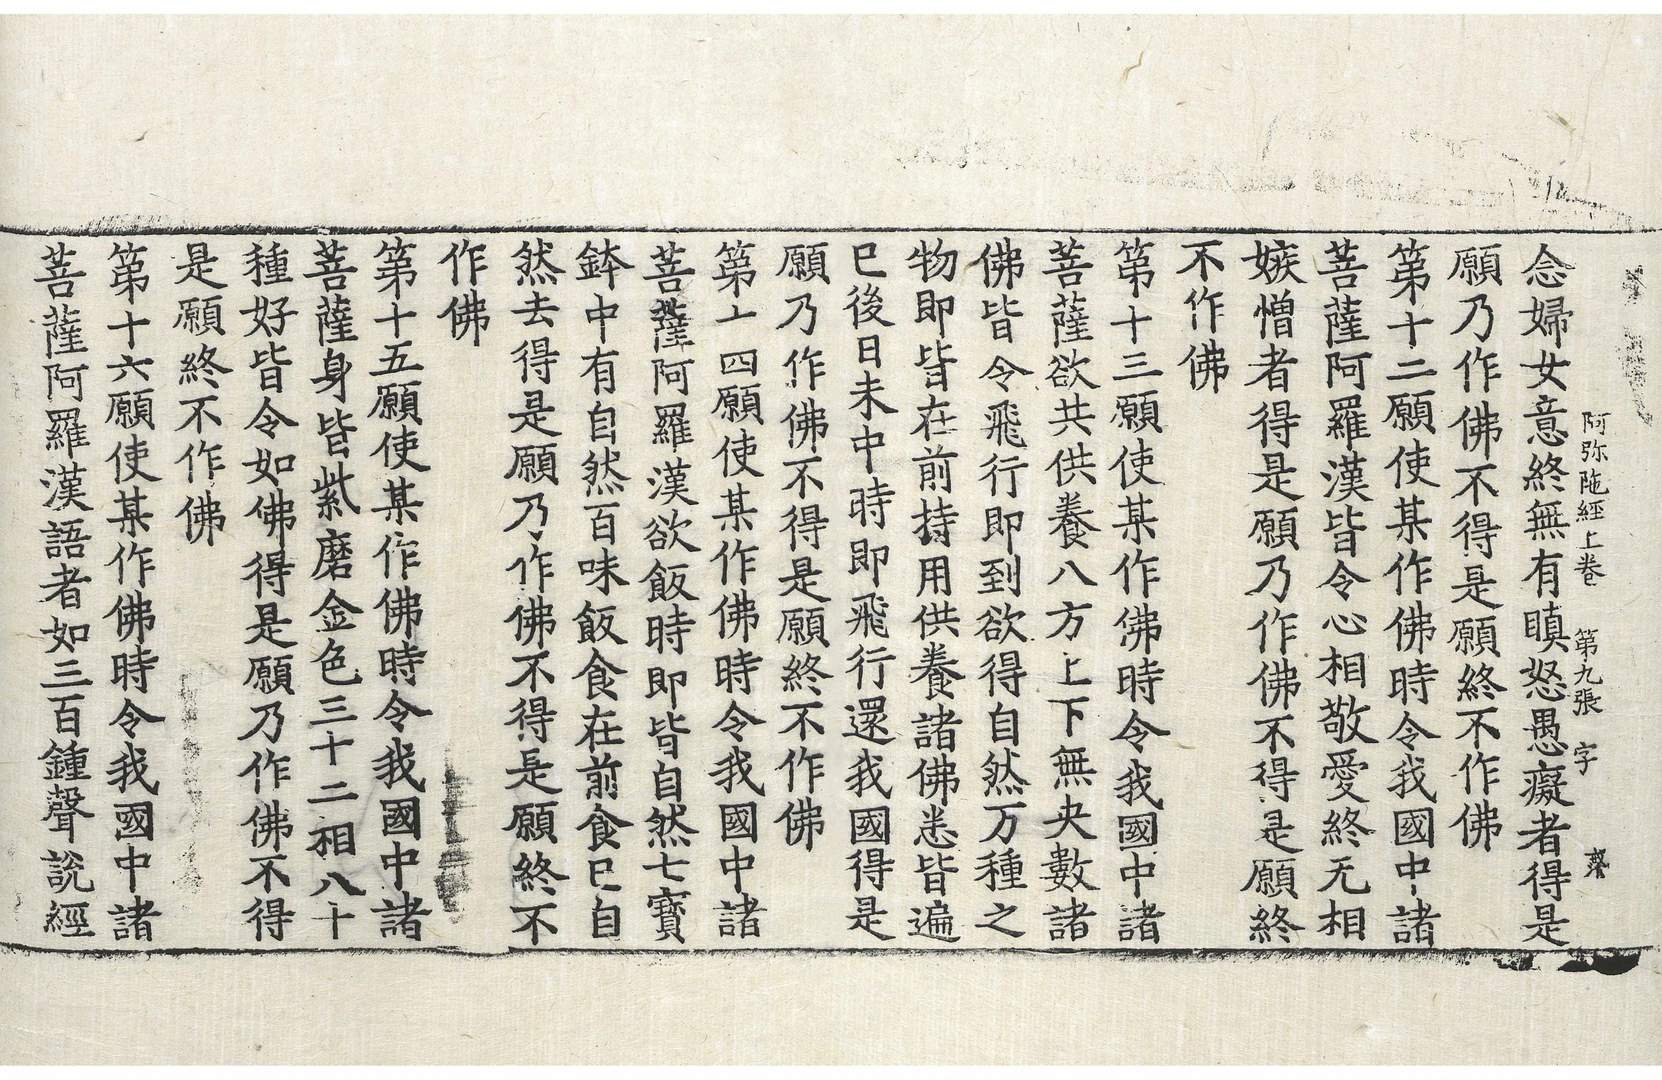 阿弥陁經上卷 第九張 字
念婦女意終無有瞋怒愚癡者得是
願乃作佛不得是願終不作佛
第十二願使某作佛時令我國中諸
菩薩阿羅漢皆令心相敬愛終无相
嫉憎者得是願乃作佛不得是願終
不作佛
第十三願使某作佛時令我國中諸
菩薩欲共供養八方上下無央數諸
佛皆令飛行即到欲得自然万種之
物即皆在前持用供養諸佛悉皆遍
已後日未中時即飛行還我國得是
願乃作佛不得是願終不作佛
第十四願使某作佛時令我國中諸
菩薩阿羅漢欲飯時即皆自然七寶
鉢中有自然百味飯食在前食已自
然去得是願乃作佛不得是願終不
作佛
第十五願使某作佛時令我國中諸
菩薩身皆紫磨金色三十二相八十
種好皆令如佛得是願乃作佛不得
是願終不作佛
第十六願使某作佛時令我國中諸
菩薩阿羅漢語者如三百鍾聲說經